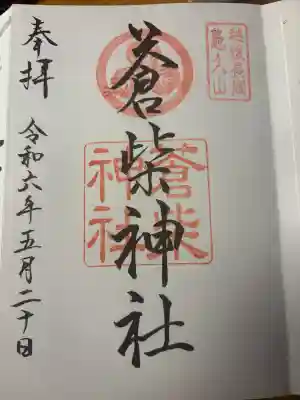 越後長岡
悠久山
蒼柴神社
蒼柴
神社
奉拝
令和六年五月二十日